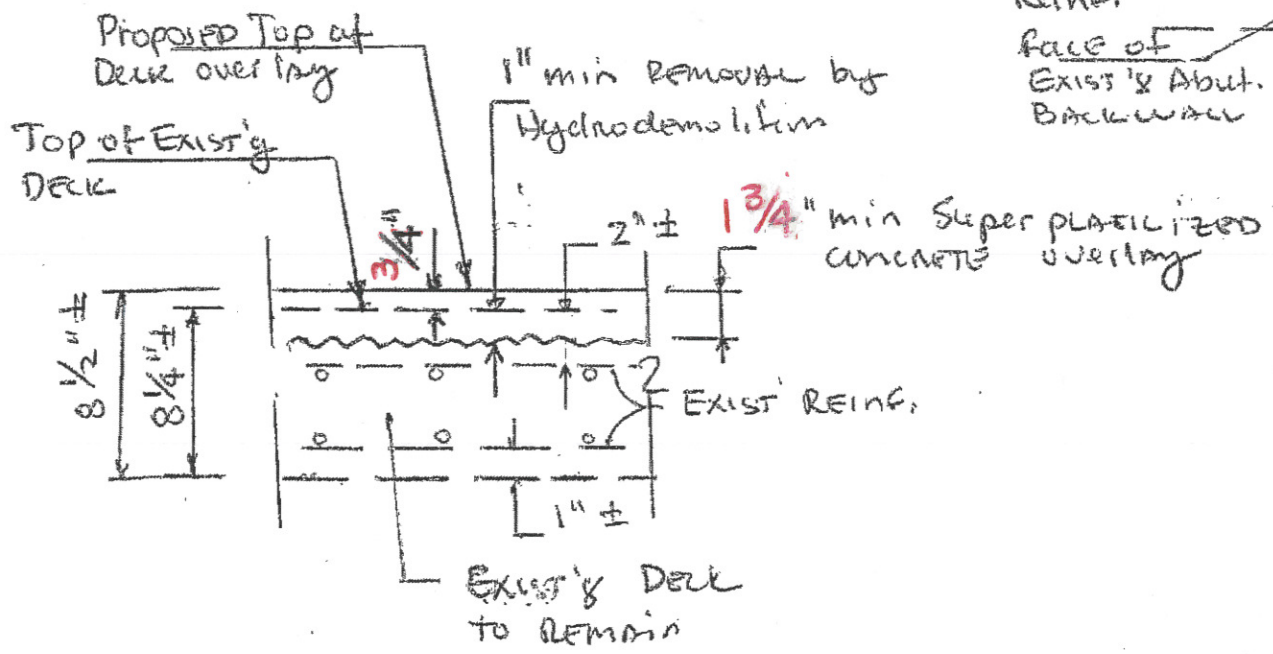 Proposed Top of
Deck overlay
1" min REMOVAL by
Hydrodemolition
Face of
EXIST'G Abut.
BACKWALL
Top of EXIST'g
DECK
3/4"
2" ±
1 3/4" min Super PLASTICIZED
CONCRETE overlay
8 1/2" ±
8 1/4" ±
EXIST REINF.
1" ±
EXIST'G DECK
TO REMAIN